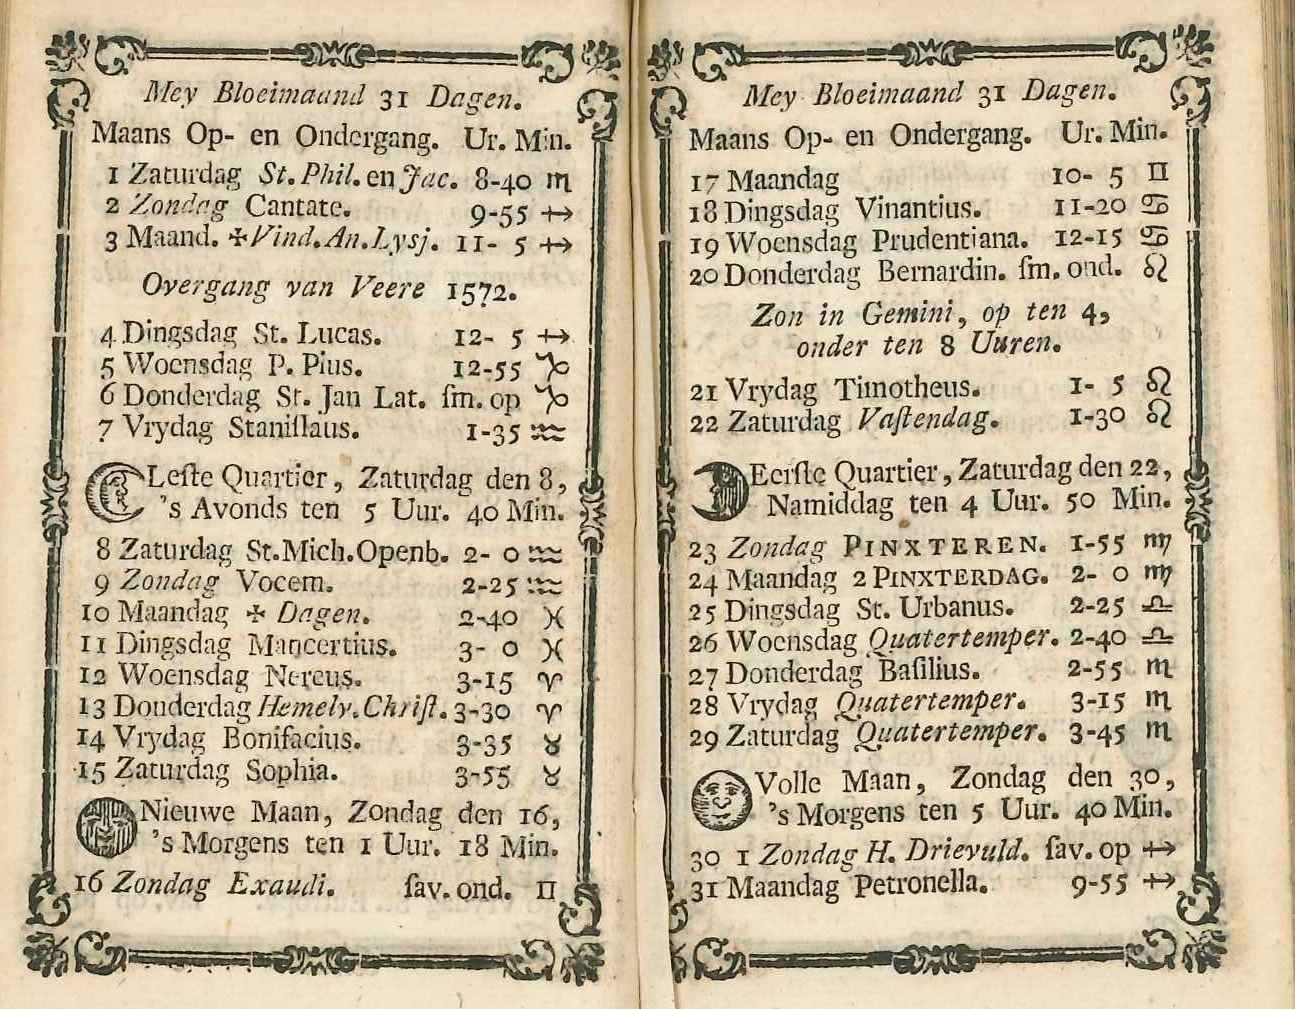 Mey Bloeimaand 31 Dagen.
Maans Op- en Ondergang. Ur. Min.
1 Zaturdag St. Phil. en Jac. 8-40 ♏
2 Zondag Cantate. 9-55 ♐
3 Maand. ✠ Vind. An. Lysj. 11- 5 ♐
Overgang van Veere 1572.
4 Dingsdag St. Lucas. 12- 5 ♐
5 Woensdag P. Pius. 12-55 ♑
6 Donderdag St. Jan Lat. ſm. op ♑
7 Vrydag Staniſlaus. 1-35 ♒
Leſte Quartier, Zaturdag den 8,
's Avonds ten 5 Uur. 40 Min.
8 Zaturdag St. Mich. Openb. 2- 0 ♒
9 Zondag Vocem. 2-25 ♒
10 Maandag ✠ Dagen. 2-40 ♓
11 Dingsdag Mancertius. 3- 0 ♓
12 Woensdag Nereus. 3-15 ♈
13 Donderdag Hemelv. Chriſt. 3-30 ♈
14 Vrydag Bonifacius. 3-35 ♉
15 Zaturdag Sophia. 3-55 ♉
Nieuwe Maan, Zondag den 16,
's Morgens ten 1 Uur. 18 Min.
16 Zondag Exaudi. ſav. ond. ♊
Mey Bloeimaand 31 Dagen.
Maans Op- en Ondergang. Ur. Min.
17 Maandag 10- 5 ♊
18 Dingsdag Vinantius. 11-20 ♋
19 Woensdag Prudentiana. 12-15 ♋
20 Donderdag Bernardin. ſm. ond. ♌
Zon in Gemini, op ten 4,
onder ten 8 Uuren.
21 Vrydag Timotheus. 1- 5 ♌
22 Zaturdag Vaſtendag. 1-30 ♌
Eerſte Quartier, Zaturdag den 22,
Namiddag ten 4 Uur. 50 Min.
23 Zondag PINXTEREN. 1-55 ♍
24 Maandag 2 PINXTERDAG. 2- 0 ♍
25 Dingsdag St. Urbanus. 2-25 ♎
26 Woensdag Quatertemper. 2-40 ♎
27 Donderdag Baſilius. 2-55 ♏
28 Vrydag Quatertemper. 3-15 ♏
29 Zaturdag Quatertemper. 3-45 ♏
Volle Maan, Zondag den 30,
's Morgens ten 5 Uur. 40 Min.
30 1 Zondag H. Drievuld. ſav. op ♐
31 Maandag Petronella. 9-55 ♐